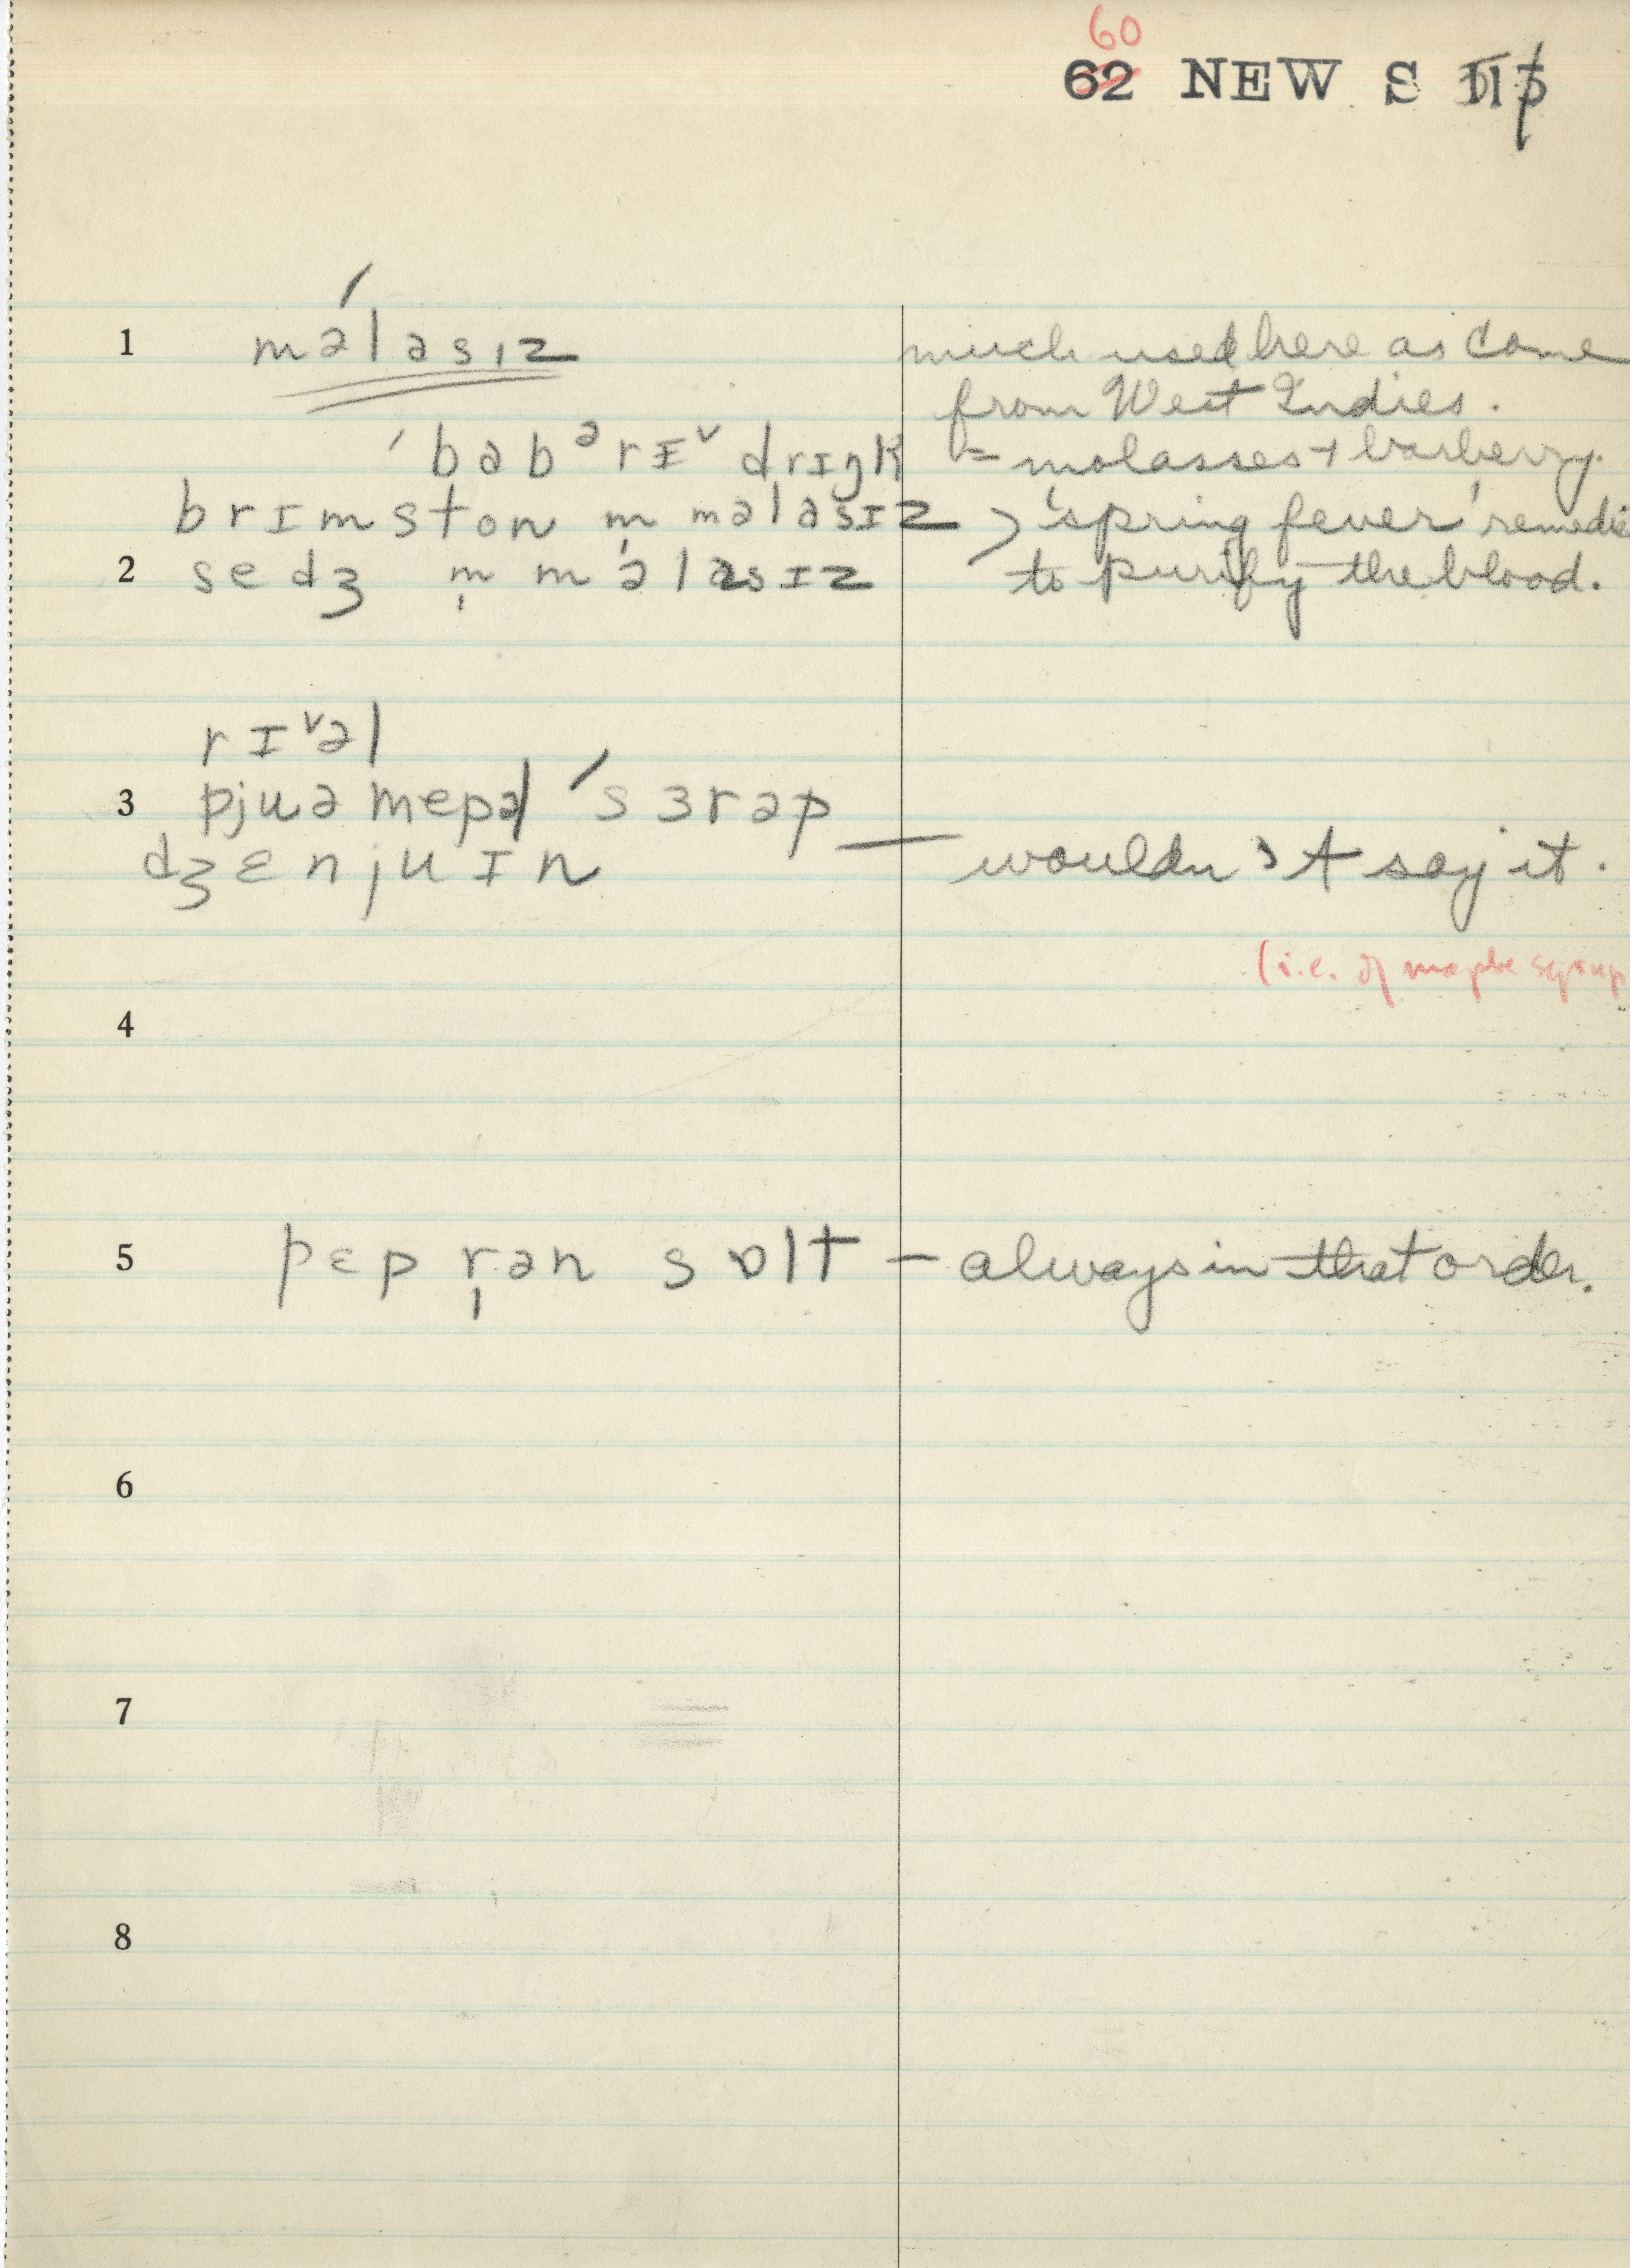 60
62 NEW S
1 məlasɪz much used here as come
from West Indies.
ˈbabᵊrɪ˅ drɪŋk = molasses + barberry.
brɪmston n̩ məlasɪz > 'spring fever' remedie
2 sedʒ n̩ məlasɪz to purify the blood.
rɪ˅əl
3 pjuə mepəl ˈsɜrəp
dʒɛnjuɪn — wouldn't say it.
(i.e. of maple syrup
4
5 pɛpr̩ən sɒlt — always in that order.
6
7
8